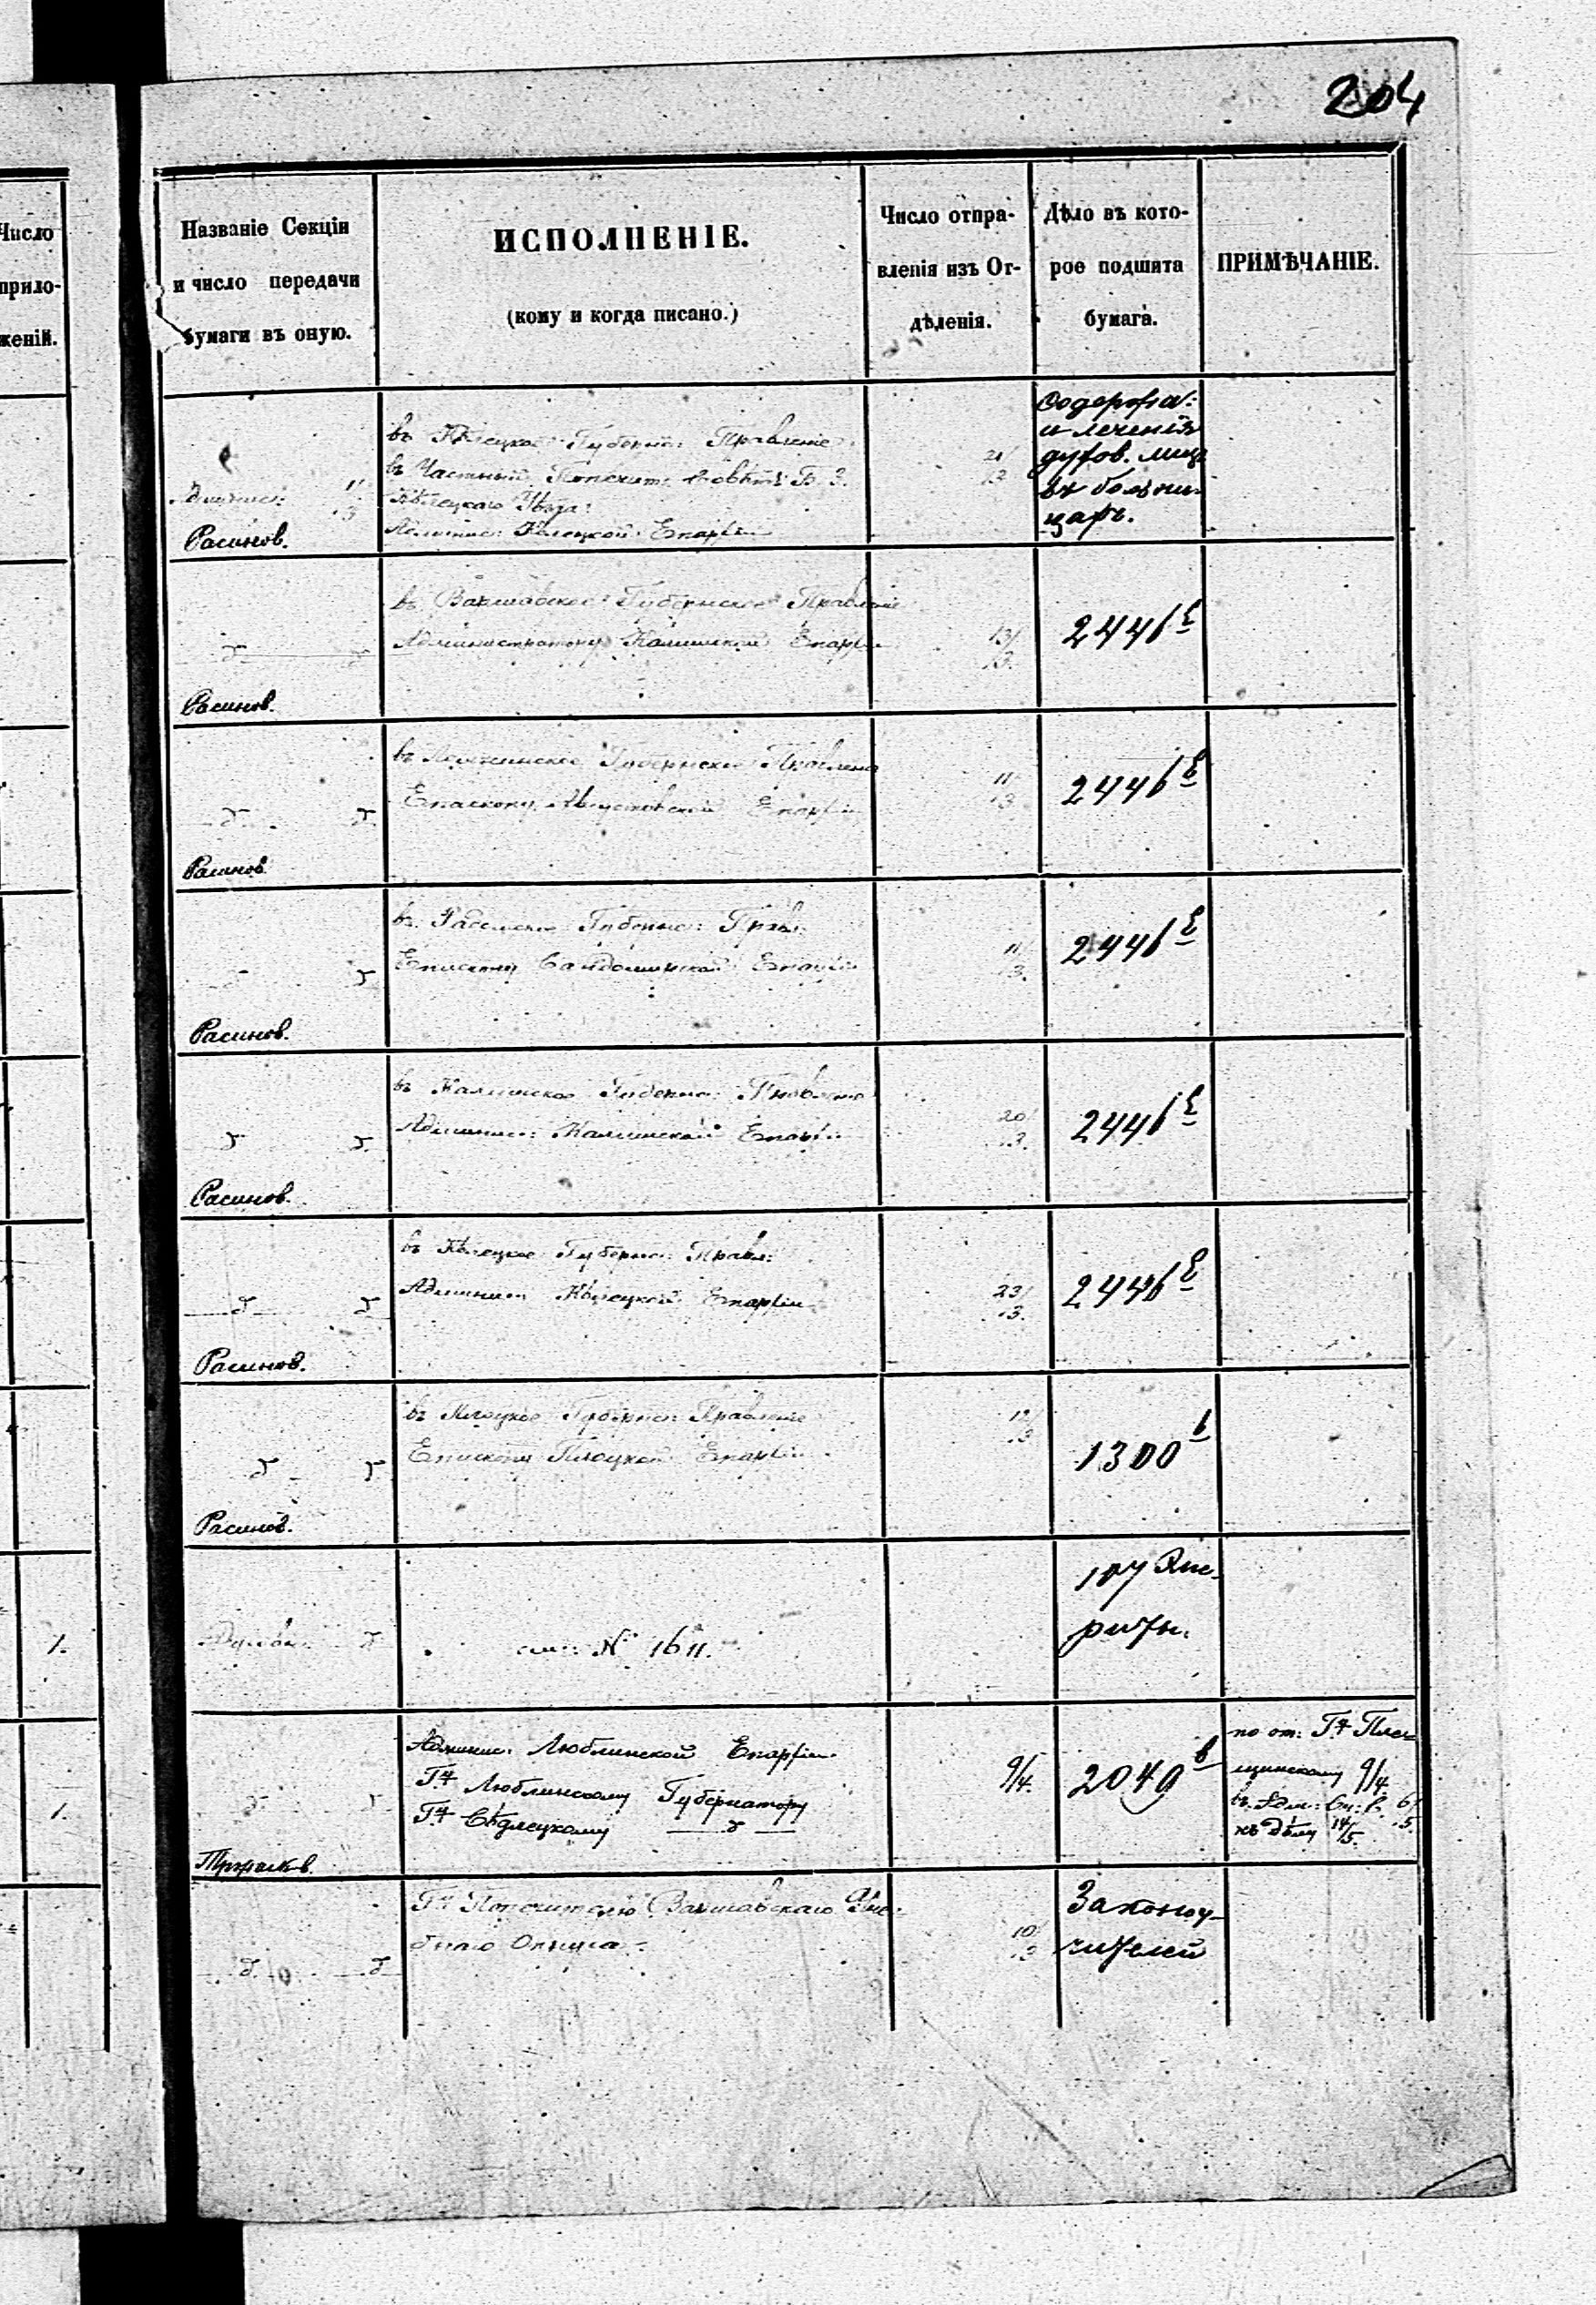 204
Число
прило-
женій.
Названіе Секціи
и число передачи
бумаги въ оную.
ИСПОЛНЕНІЕ.
(кому и когда писано.)
Число отпра-
вленія изъ От-
дѣленія.
Дѣло въ кото-
рое подшита
бумага.
ПРИМѢЧАНІЕ.
11/3
Расинов.
въ Кѣлецкое Губернс: Правленіе
въ Частный Попечит: Совѣтъ Б. З.
Кѣлецкаго Уѣзда:
Админис: Кѣлецкой Епархіи
21/3
Содержа:
и леченія
духов. лицъ
въ больни-
цахъ.
Расинов.
въ Варшавское Губернское Правленіе
Администратору Калишской Епархіи
13/3.
2446 Е
Расинов.
въ Ломжинское Губернское Правлені
Епископу Августовской Епархіи
11/3
2446 Е
Расинов.
въ Радомское Губернс: Прав:
Епископу Сандомирской Епархіи
11/3.
2446 Е
Расинов.
въ Калишское Губернс: Правленіе
Админис: Калишской Епархіи
20/3.
2446 Е
Расинов.
въ Кѣлецкое Губернс: Правл:
Админис: Кѣлецкой Епархіи
23/3.
2446 Е
Расинов.
въ Плоцкое Губернс: Правленіе
Епископу Плоцкой Епархіи
12/3
1300
см: № 1611.
107
1.
Админис: Люблинской Епархіи
Гну Люблинскому Губернатору
Гну Сѣдлецкому
9/4.
2049 в
по от: Гну
9/4
къ дѣлу 14/5.
1.
Гну Попечителю Варшавскаго Уче-
бнаго Округа
10/3
Законоу-
чителей